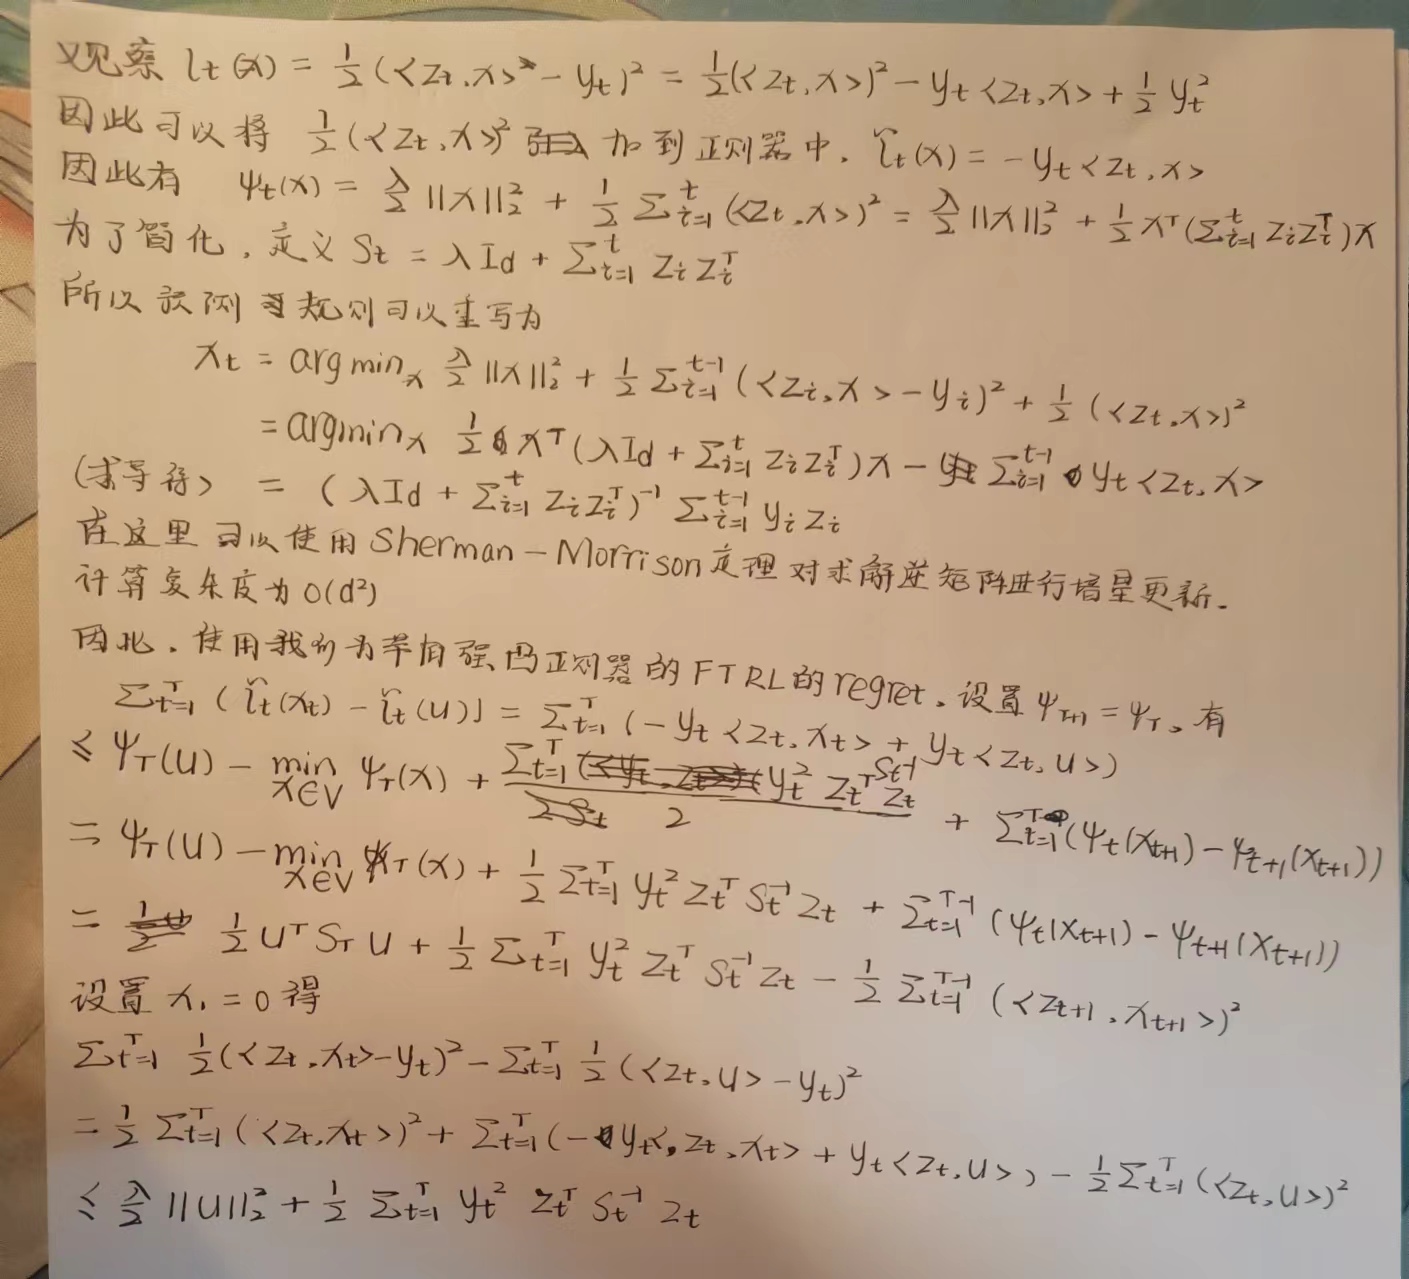 观察 lt(x) = 1/2 (<Zt,x> - yt)² = 1/2(<Zt,x>)² - yt<Zt,x> + 1/2 yt²
因此可以将 1/2(<Zt,x>)² 加到正则器中. l̃t(x) = -yt<Zt,x>
因此有 ψt(x) = λ/2 ||x||₂² + 1/2 Σᵗi=1 (<Zi,x>)² = λ/2 ||x||₂² + 1/2 xᵀ(Σᵗi=1 ZiZiᵀ)x
为了简化, 定义 St = λId + Σᵗi=1 Zi Ziᵀ
所以 规则可以重写为
xt = argminx λ/2 ||x||₂² + 1/2 Σᵗ⁻¹i=1 (<Zi,x> - yi)² + 1/2 (<Zt,x>)²
= argminx 1/2 xᵀ(λId + Σᵗi=1 ZiZiᵀ)x - Σᵗ⁻¹i=1 yt<Zt,x>
(求导得) = (λId + Σᵗi=1 ZiZiᵀ)⁻¹ Σᵗ⁻¹i=1 yi Zi
在这里可以使用Sherman-Morrison定理对求解逆矩阵进行增量更新.
计算复杂度为O(d²)
因此. 使用 强凸正则器的FTRL的regret. 设置ψT+1 = ψT. 有
Σᵀt=1 (l̃t(xt) - l̃t(u)) = Σᵀt=1 (-yt<Zt,xt> + yt<Zt,u>)
≤ ψT(u) - min x∈V ψT(x) + Σᵀt=1 yt² Ztᵀ St⁻¹ Zt / 2 + Σᵀt=1 (ψt(xt+1) - ψt+1(xt+1))
= ψT(u) - min x∈V ψT(x) + 1/2 Σᵀt=1 yt² Ztᵀ St⁻¹ Zt + Σᵀ⁻¹t=1 (ψt(xt+1) - ψt+1(xt+1))
= 1/2 uᵀ ST u + 1/2 Σᵀt=1 yt² Ztᵀ St⁻¹ Zt - 1/2 Σᵀ⁻¹t=1 (<Zt+1,xt+1>)²
设置 x₁ = 0 得
Σᵀt=1 1/2(<Zt,xt>-yt)² - Σᵀt=1 1/2(<Zt,u>-yt)²
= 1/2 Σᵀt=1 (<Zt,xt>)² + Σᵀt=1 (-yt<Zt,xt> + yt<Zt,u>) - 1/2 Σᵀt=1 (<Zt,u>)²
≤ λ/2 ||u||₂² + 1/2 Σᵀt=1 yt² Ztᵀ St⁻¹ Zt